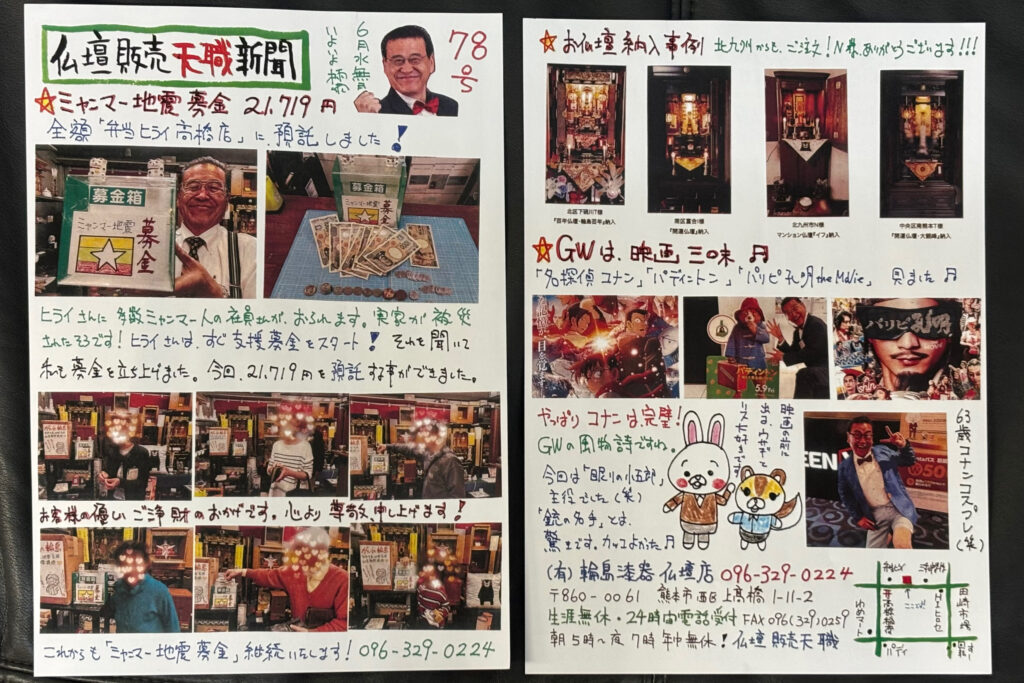 仏壇販売天職新聞
6月水無月
いよいよ
78号
☆ミャンマー地震募金 21.719円
全額「弁当ヒライ高橋店」に預託しました!
募金箱
ミャンマー地震
募金
募金箱
ヒライさんに多数ミャンマー人の社員さんが、おられます。実家が被災
されたそうです!ヒライさんは、すぐ支援募金をスタート!それを聞いて
私も募金を立ち上げました。今回、21.719円を預託する事ができました。
お客様の優しいご浄財のおかげです。心より尊敬申し上げます!
これからも「ミャンマー地震募金」継続いたします!096-329-0224
☆お仏壇納入事例 北九州からも、ご注文!N様ありがとうございます!!!
北区下硯川T様
「百年仏壇・輪島百年」納入
南区富合I様
「開運仏壇」納入
北九州市N様
マンション仏壇「イフ」納入
中央区南熊本T様
「開運仏壇・大観峰」納入
☆GWは、映画三昧♬
「名探偵コナン」「パディントン」「パリピ孔明the Movie」見ました♬
パディントン
5.9
パリピ孔明
やっぱりコナンは、完璧!
GWの風物詩ですね。
今回は「眠りの小五郎」
主役でした(笑)
「銃の名手」とは、
驚きです。カッコよかった♬
映画の前に
出る、ウサギと
リス大好きです
63歳コナンコスプレ(笑)
(有)輪島漆器仏壇店 096-329-0224
〒860-0061 熊本市西区上高橋1-11-2
生涯無休・24時間電話受付 FAX096(329)0259
朝5時~夜7時年中無休!仏壇販売天職
ここ
高橋稲荷
ゆめマート
田崎市場